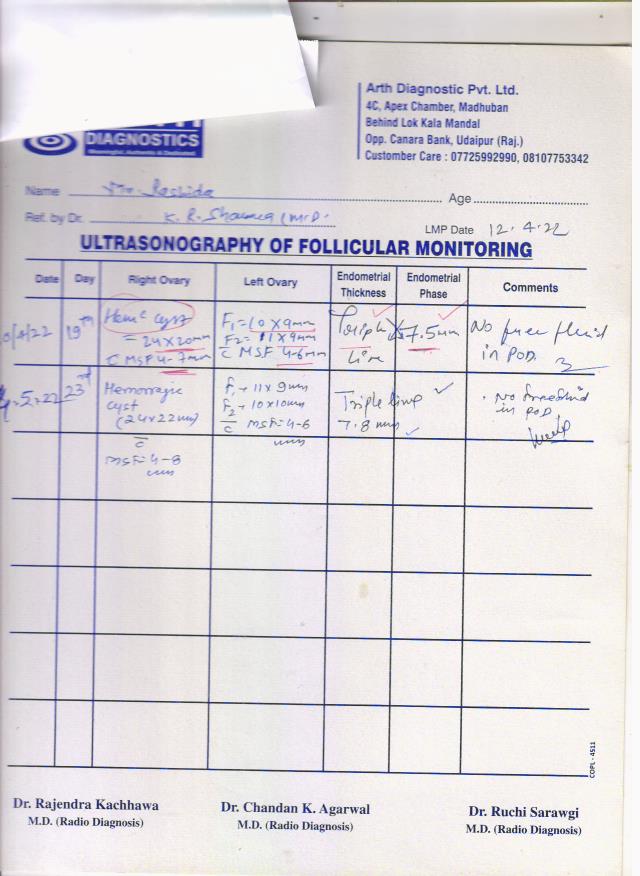 DIAGNOSTICS
Meaningful, Authentic & Dedicated.
Arth Diagnostic Pvt. Ltd.
4C, Apex Chamber, Madhuban
Behind Lok Kala Mandal
Opp. Canara Bank, Udaipur (Raj.)
Customber Care : 07725992990, 08107753342
Name Age
Ref. by Dr. K. R. Sharma (M.D.
LMP Date 12.4.22
ULTRASONOGRAPHY OF FOLLICULAR MONITORING
Date Day Right Ovary Left Ovary Endometrial Thickness Endometrial Phase Comments
0/4/22 19th
= 24 x 20mm
c̅ MSF 4-7mm
F1 = 10 x 9mm
F2 = 11 x 9mm
c̅ MSF 4-6mm
line
7.5mm
No free fluid
in POD.
5.22 23rd
Hemorragic
cyst
(24x22mm)
c̅
MSF=4-8
mm
F1 → 11 x 9mm
F2 → 10x10mm
c̅ MSF=4-6
mm
Triple line
7.8 mm
. No freefluid
in POD
COPL - 4511
Dr. Rajendra Kachhawa
M.D. (Radio Diagnosis)
Dr. Chandan K. Agarwal
M.D. (Radio Diagnosis)
Dr. Ruchi Sarawgi
M.D. (Radio Diagnosis)